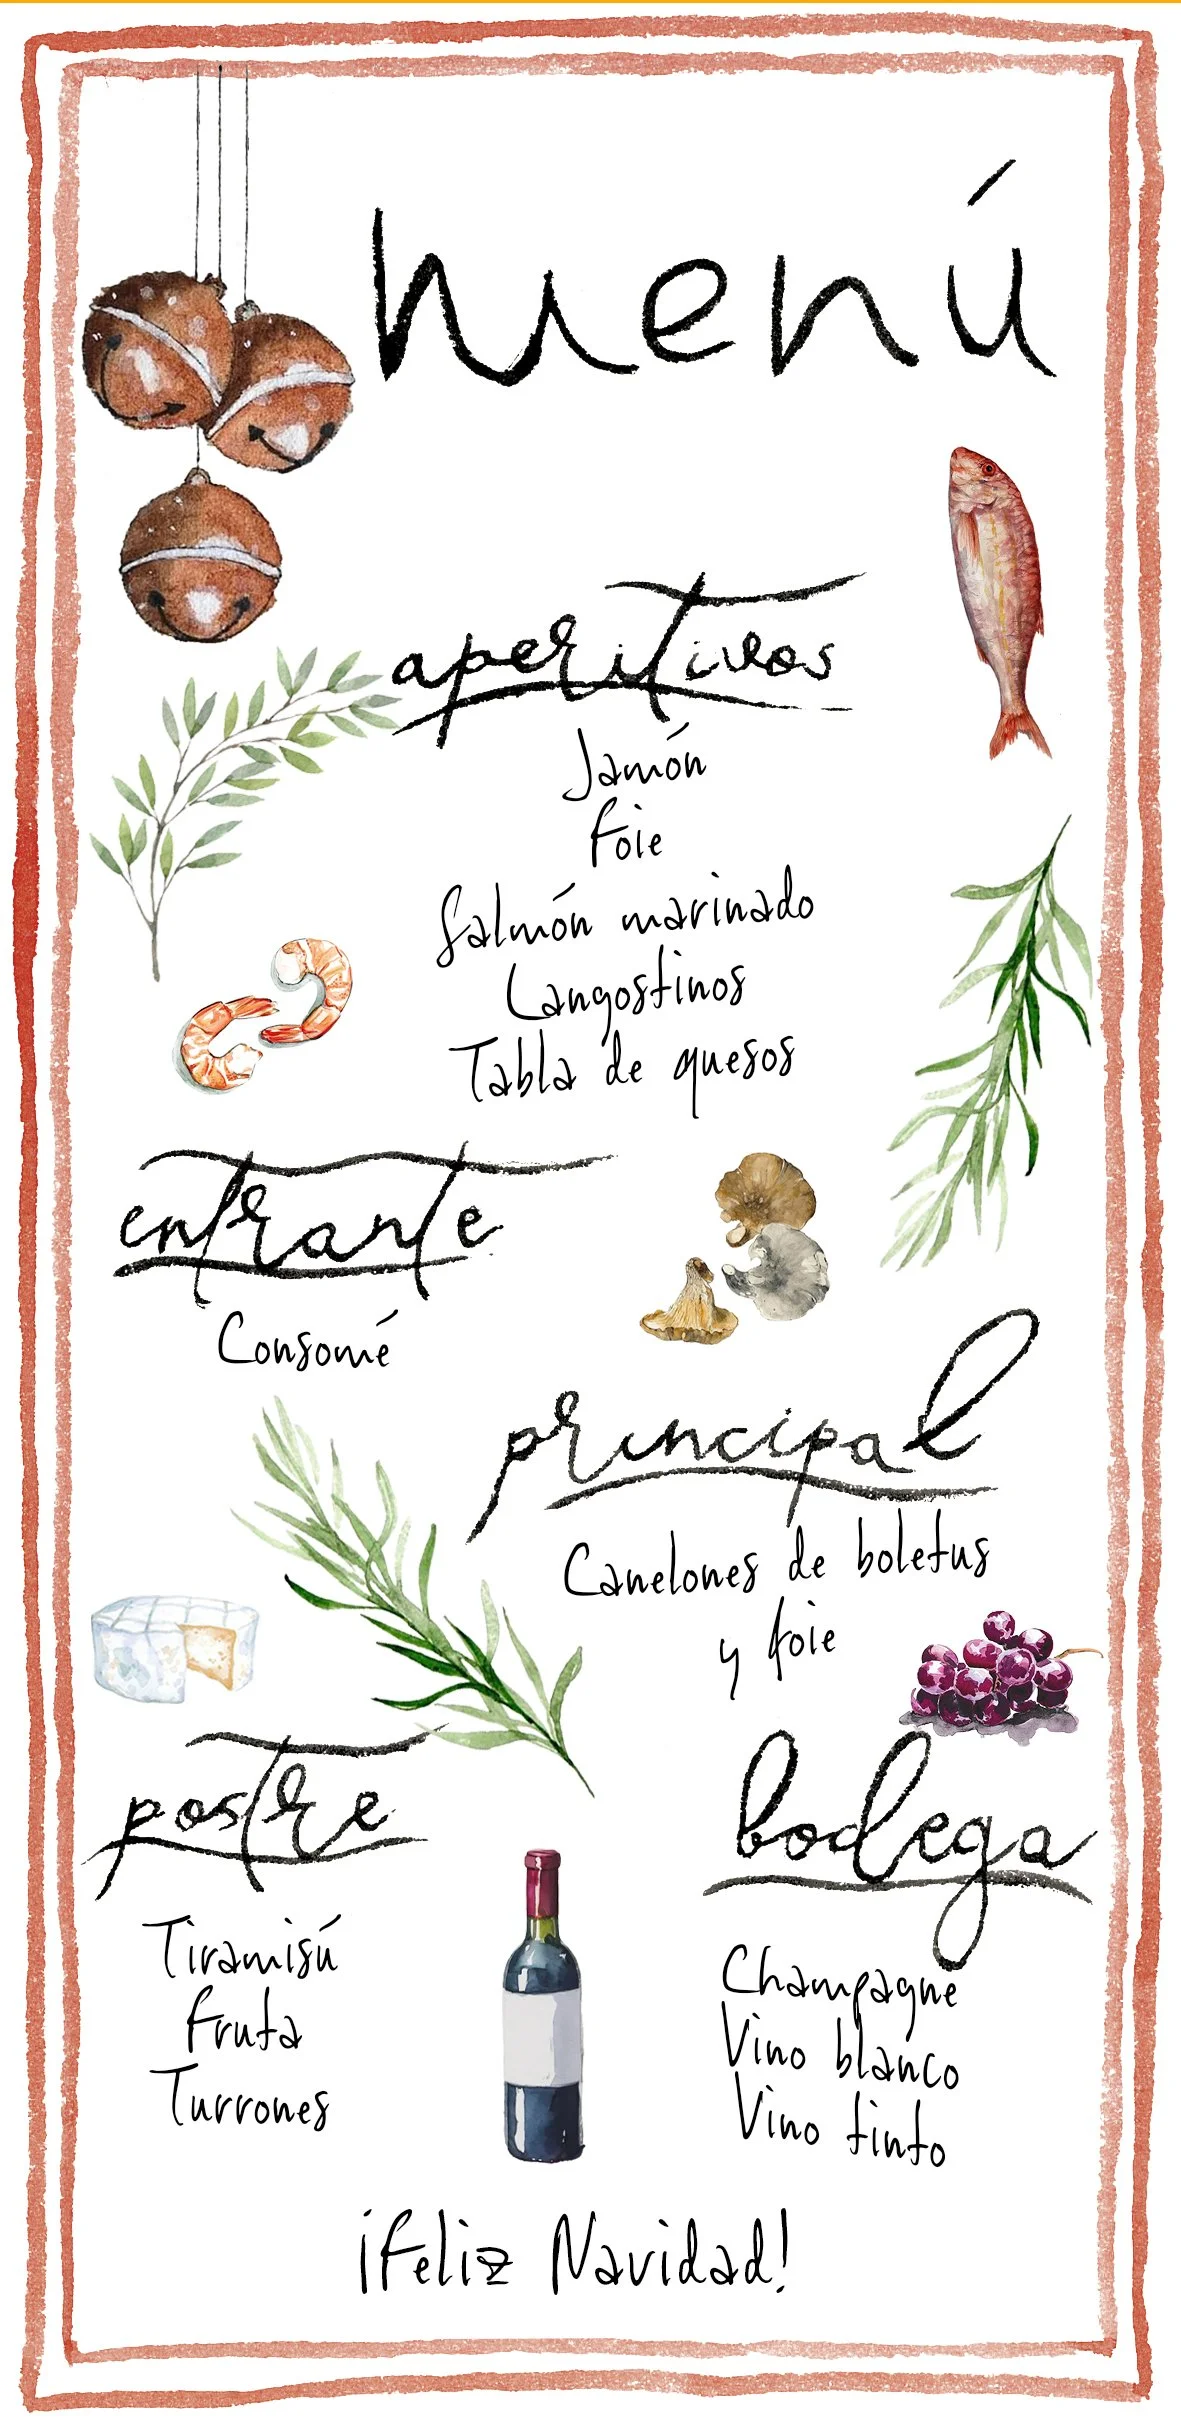 menú
aperitivos
Jamón
Foie
Salmón marinado
Langostinos
Tabla de quesos
entrante
Consomé
principal
Canelones de boletus
y foie
postre
Tiramisú
Fruta
Turrones
bodega
Champagne
Vino blanco
Vino tinto
¡Feliz Navidad!